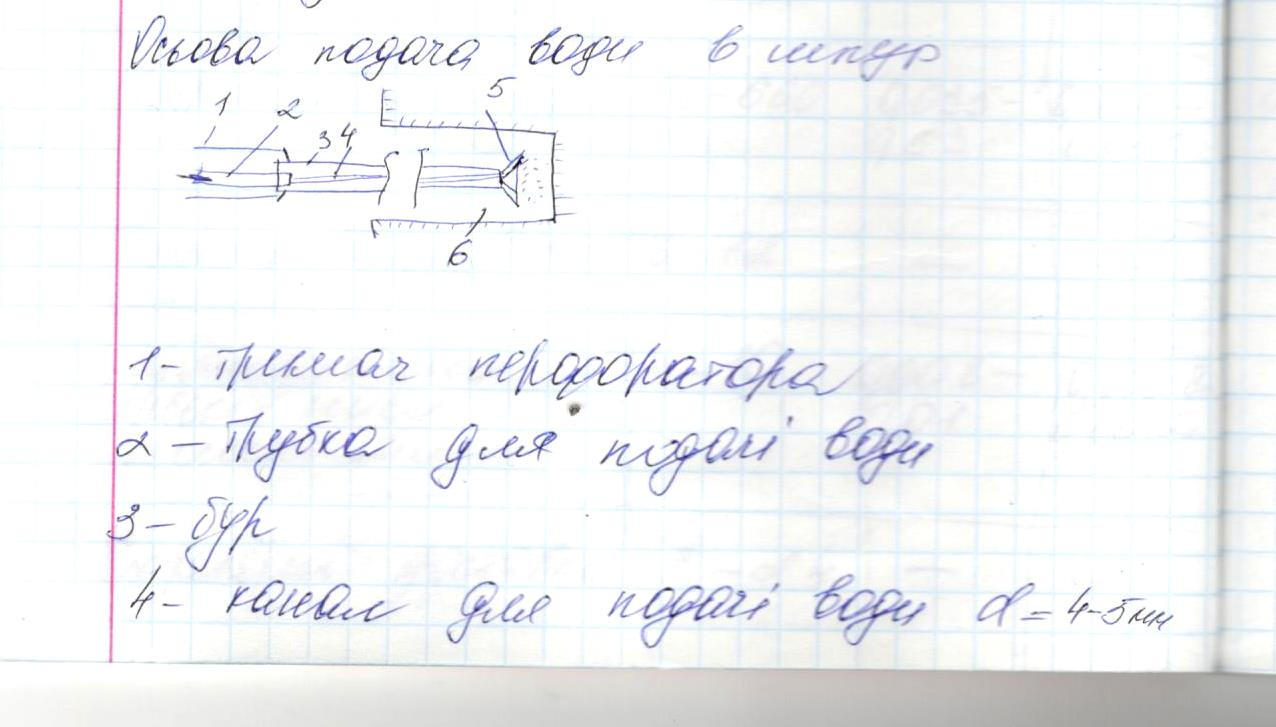 Осьова подача води в шпур
1 2 3 4 5
6
1- тримач перфоратора
2 - трубка для подачі води
3 - бур
4 - канал для подачі води d = 4-5мм